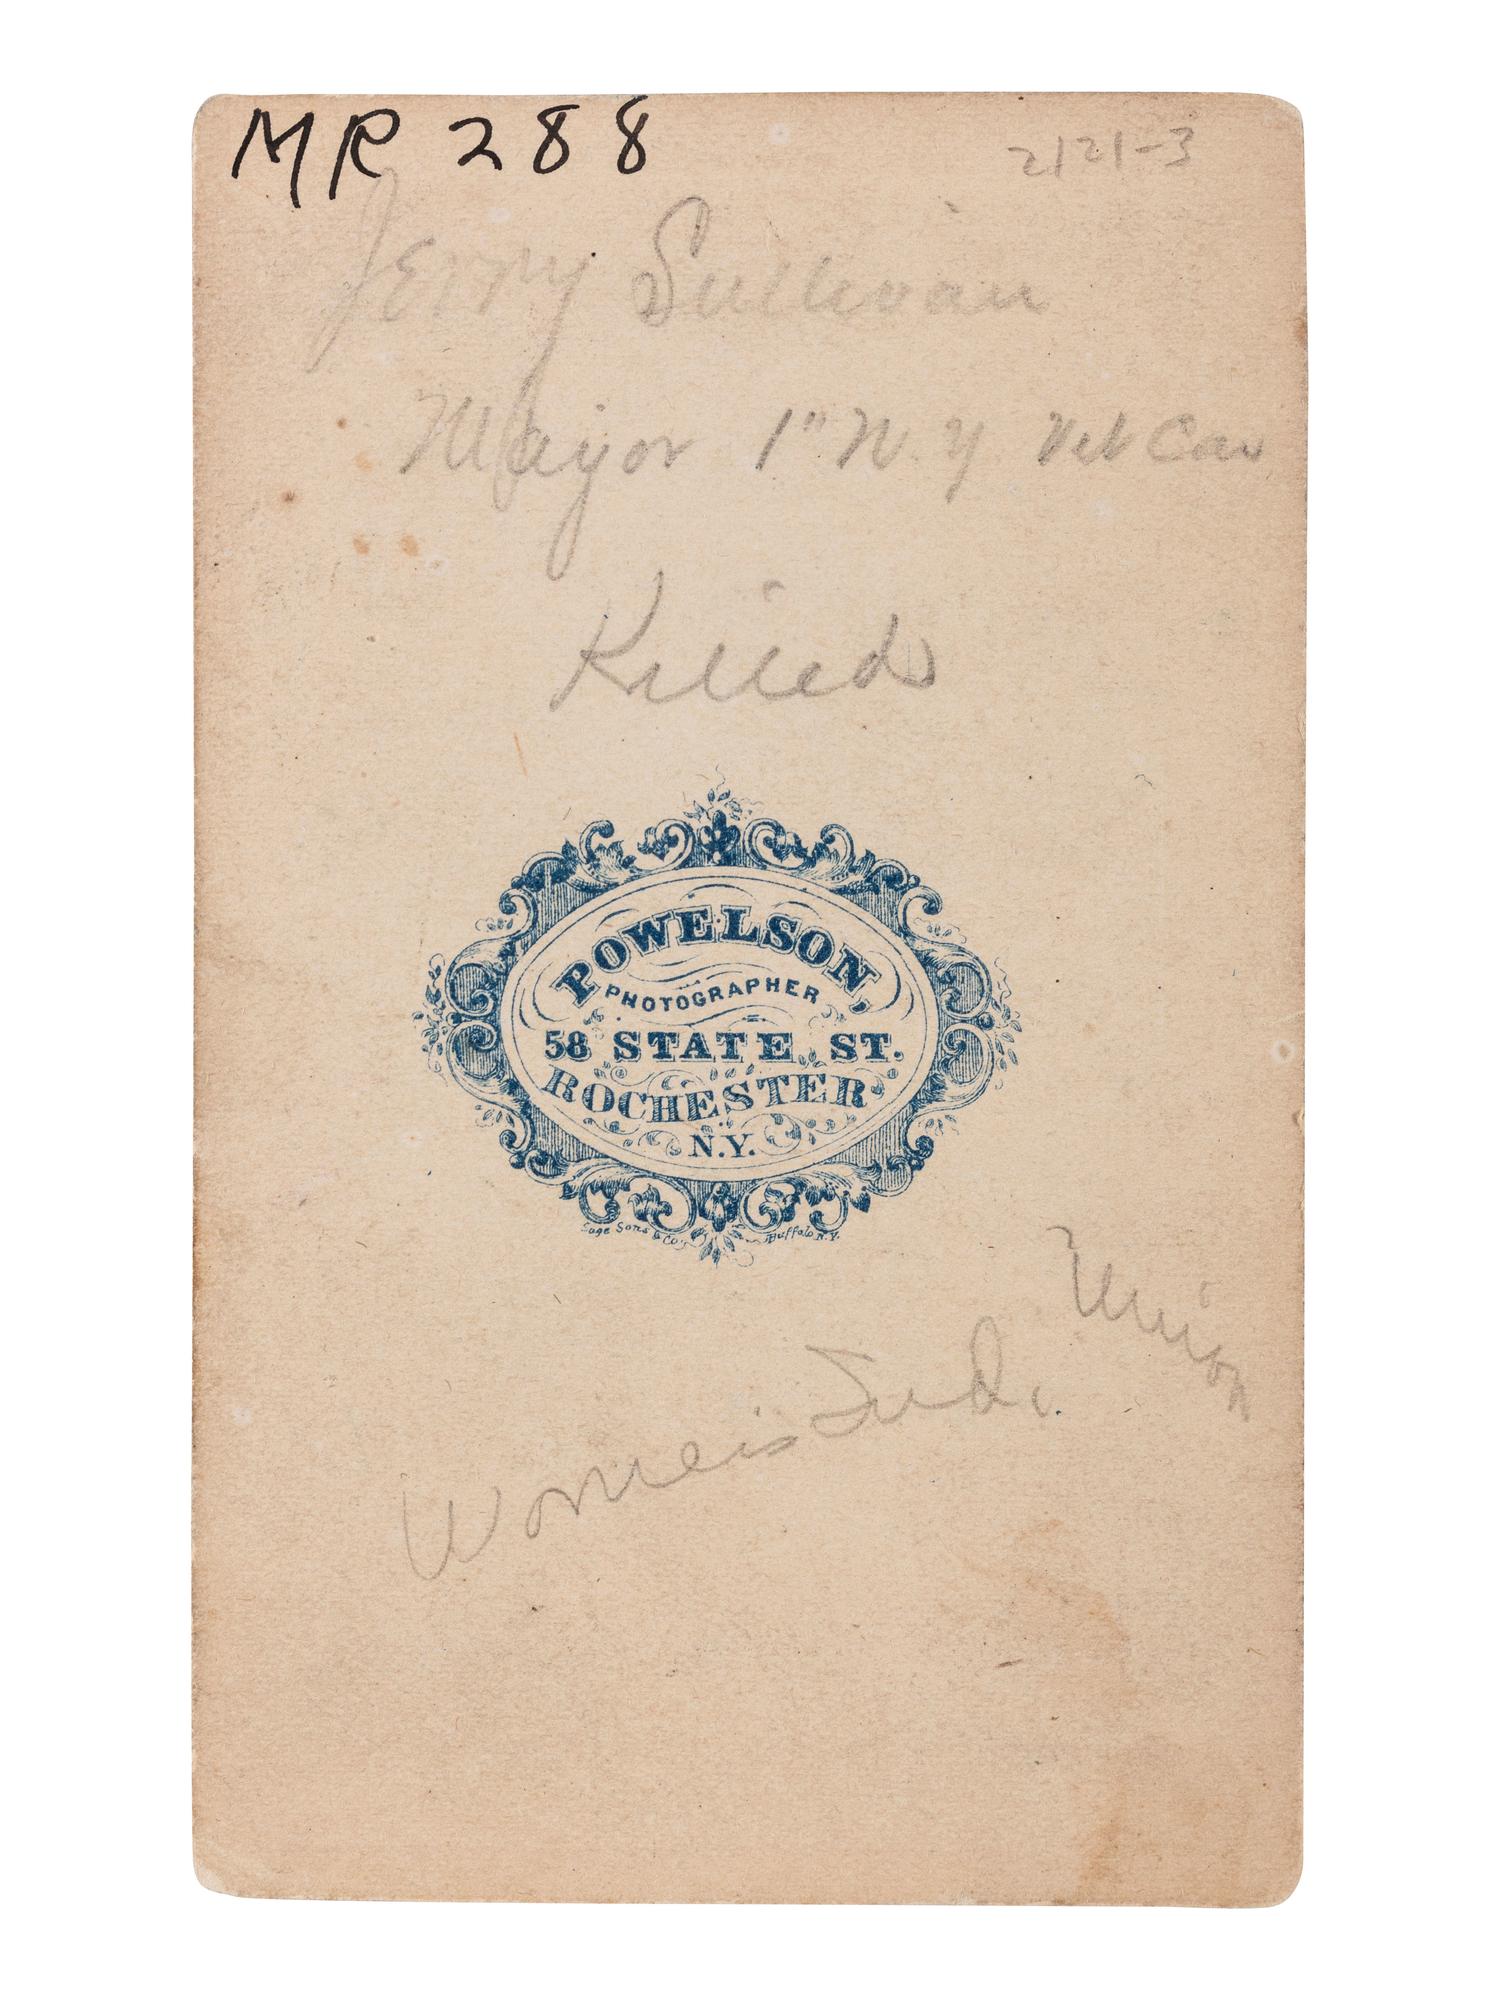 MR 288
2121-3
Jerry Sullivan
Major 1" N.Y Vet Cav
Killed
POWELSON,
PHOTOGRAPHER
58 STATE ST.
ROCHESTER
N.Y.
Sage Sons & Co. Buffalo N.Y.
Union